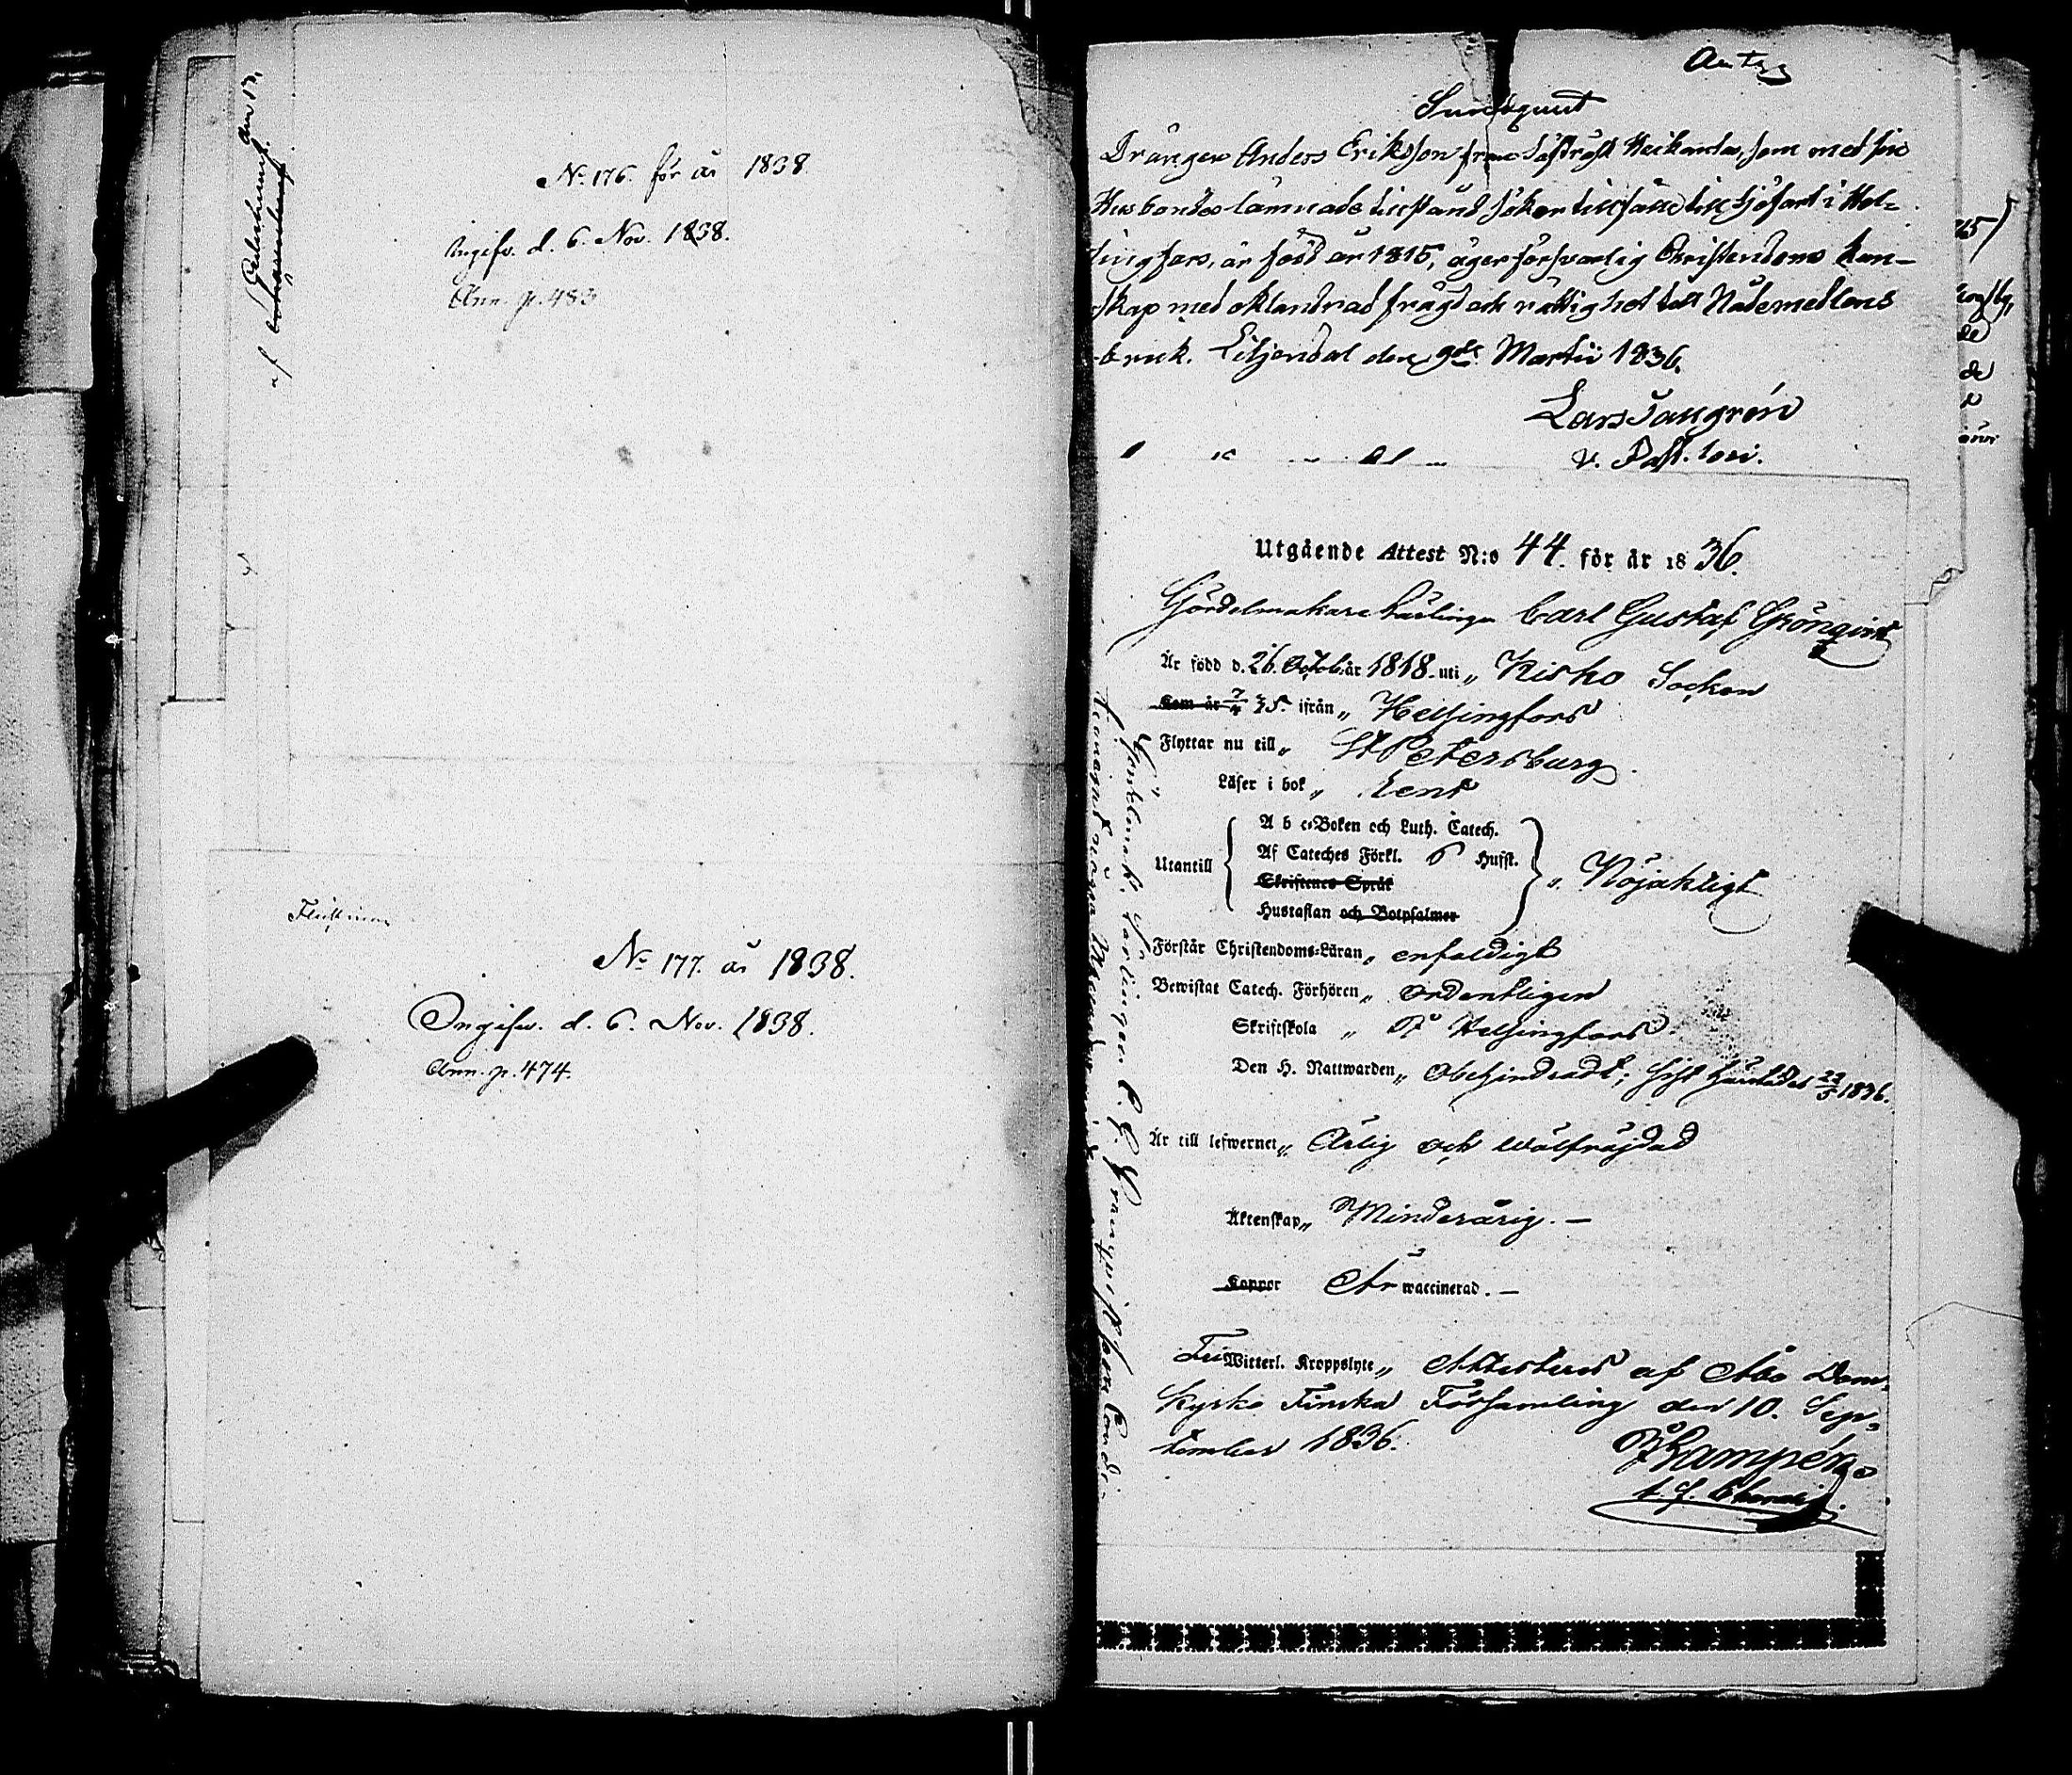 No 176. för år 1838.
Ingifv. d. 6. Nov. 1838.
Ann. p. 483
No 177. år 1838.
Ingifv. d. 6. Nov. 1838.
Ann. p. 474.
Sundqvist
Drängen Anders Eriksson från Säfträsk, som med sin
Husbondes lämnade tillstånd söker tillfälle till sjöfart i Hel-
singfors, är född år 1815, äger försvarlig Christendoms kun-
skap med oklandrad frägd och rättighet till Nådemedlens
bruk. Liljendal den 9de Martii 1836.
Lars Tallgrén
v. Past. loci.
Utgående Attest N:o 44. för år 1836.
Gördelmakare Lärlingen Carl Gustaf Grönqvist
Är född d. 26. Octob. år 1818. uti „ Kisko Socken
Kom år 7/4 35. ifrån „ Helsingfors
Flyttar nu till „ St Petersburg.
Läser i bok „ Rent
A b c-Boken och Luth. Catech.
Utantill Af Cateches Förkl. 6 Hufst. „ Nöjaktigt
Skriftenes Språk
Hustaflan och Botpsalmer
Förstår Christendoms-Läran „ enfaldigt
Bewistat Catech. Förhören „ ordentligen
Skriftskola „ i Helsingfors.
Den H. Nattwarden „ obehindradt; sist härstädes 22/5 1836.
Är till lefwernet „ Ärlig och wälfräjdad
Äktenskap „ Minderårig. —
Koppor Är waccinerad. —
Witterl. Kroppslyte „ Attesteras af Åbo Dom-
kyrko Finska Församling den 10. Sep-
tember 1836.